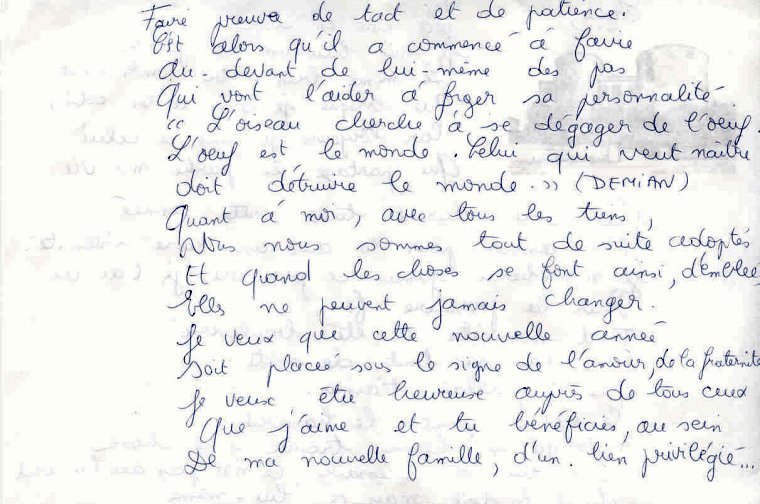 Faire preuve de tact et de patience.
C'est alors qu'il a commencé à faire
Au-devant de lui-même des pas
Qui vont l'aider à forger sa personnalité.
"L'oiseau cherche à se dégager de l'oeuf.
L'oeuf est le monde. Celui qui veut naître
doit détruire le monde." (DEMIAN)
Quant à moi, avec tous les tiens,
Nous nous sommes tout de suite adoptés
Et quand les choses se font ainsi, d'emblée,
Elles ne peuvent jamais changer.
Je veux que cette nouvelle année
Soit placée sous le signe de l'amour, de la fraternité
Je veux être heureuse auprès de tous ceux
Que j'aime et tu bénéficies, au sein
De ma nouvelle famille, d'un lien privilégié...